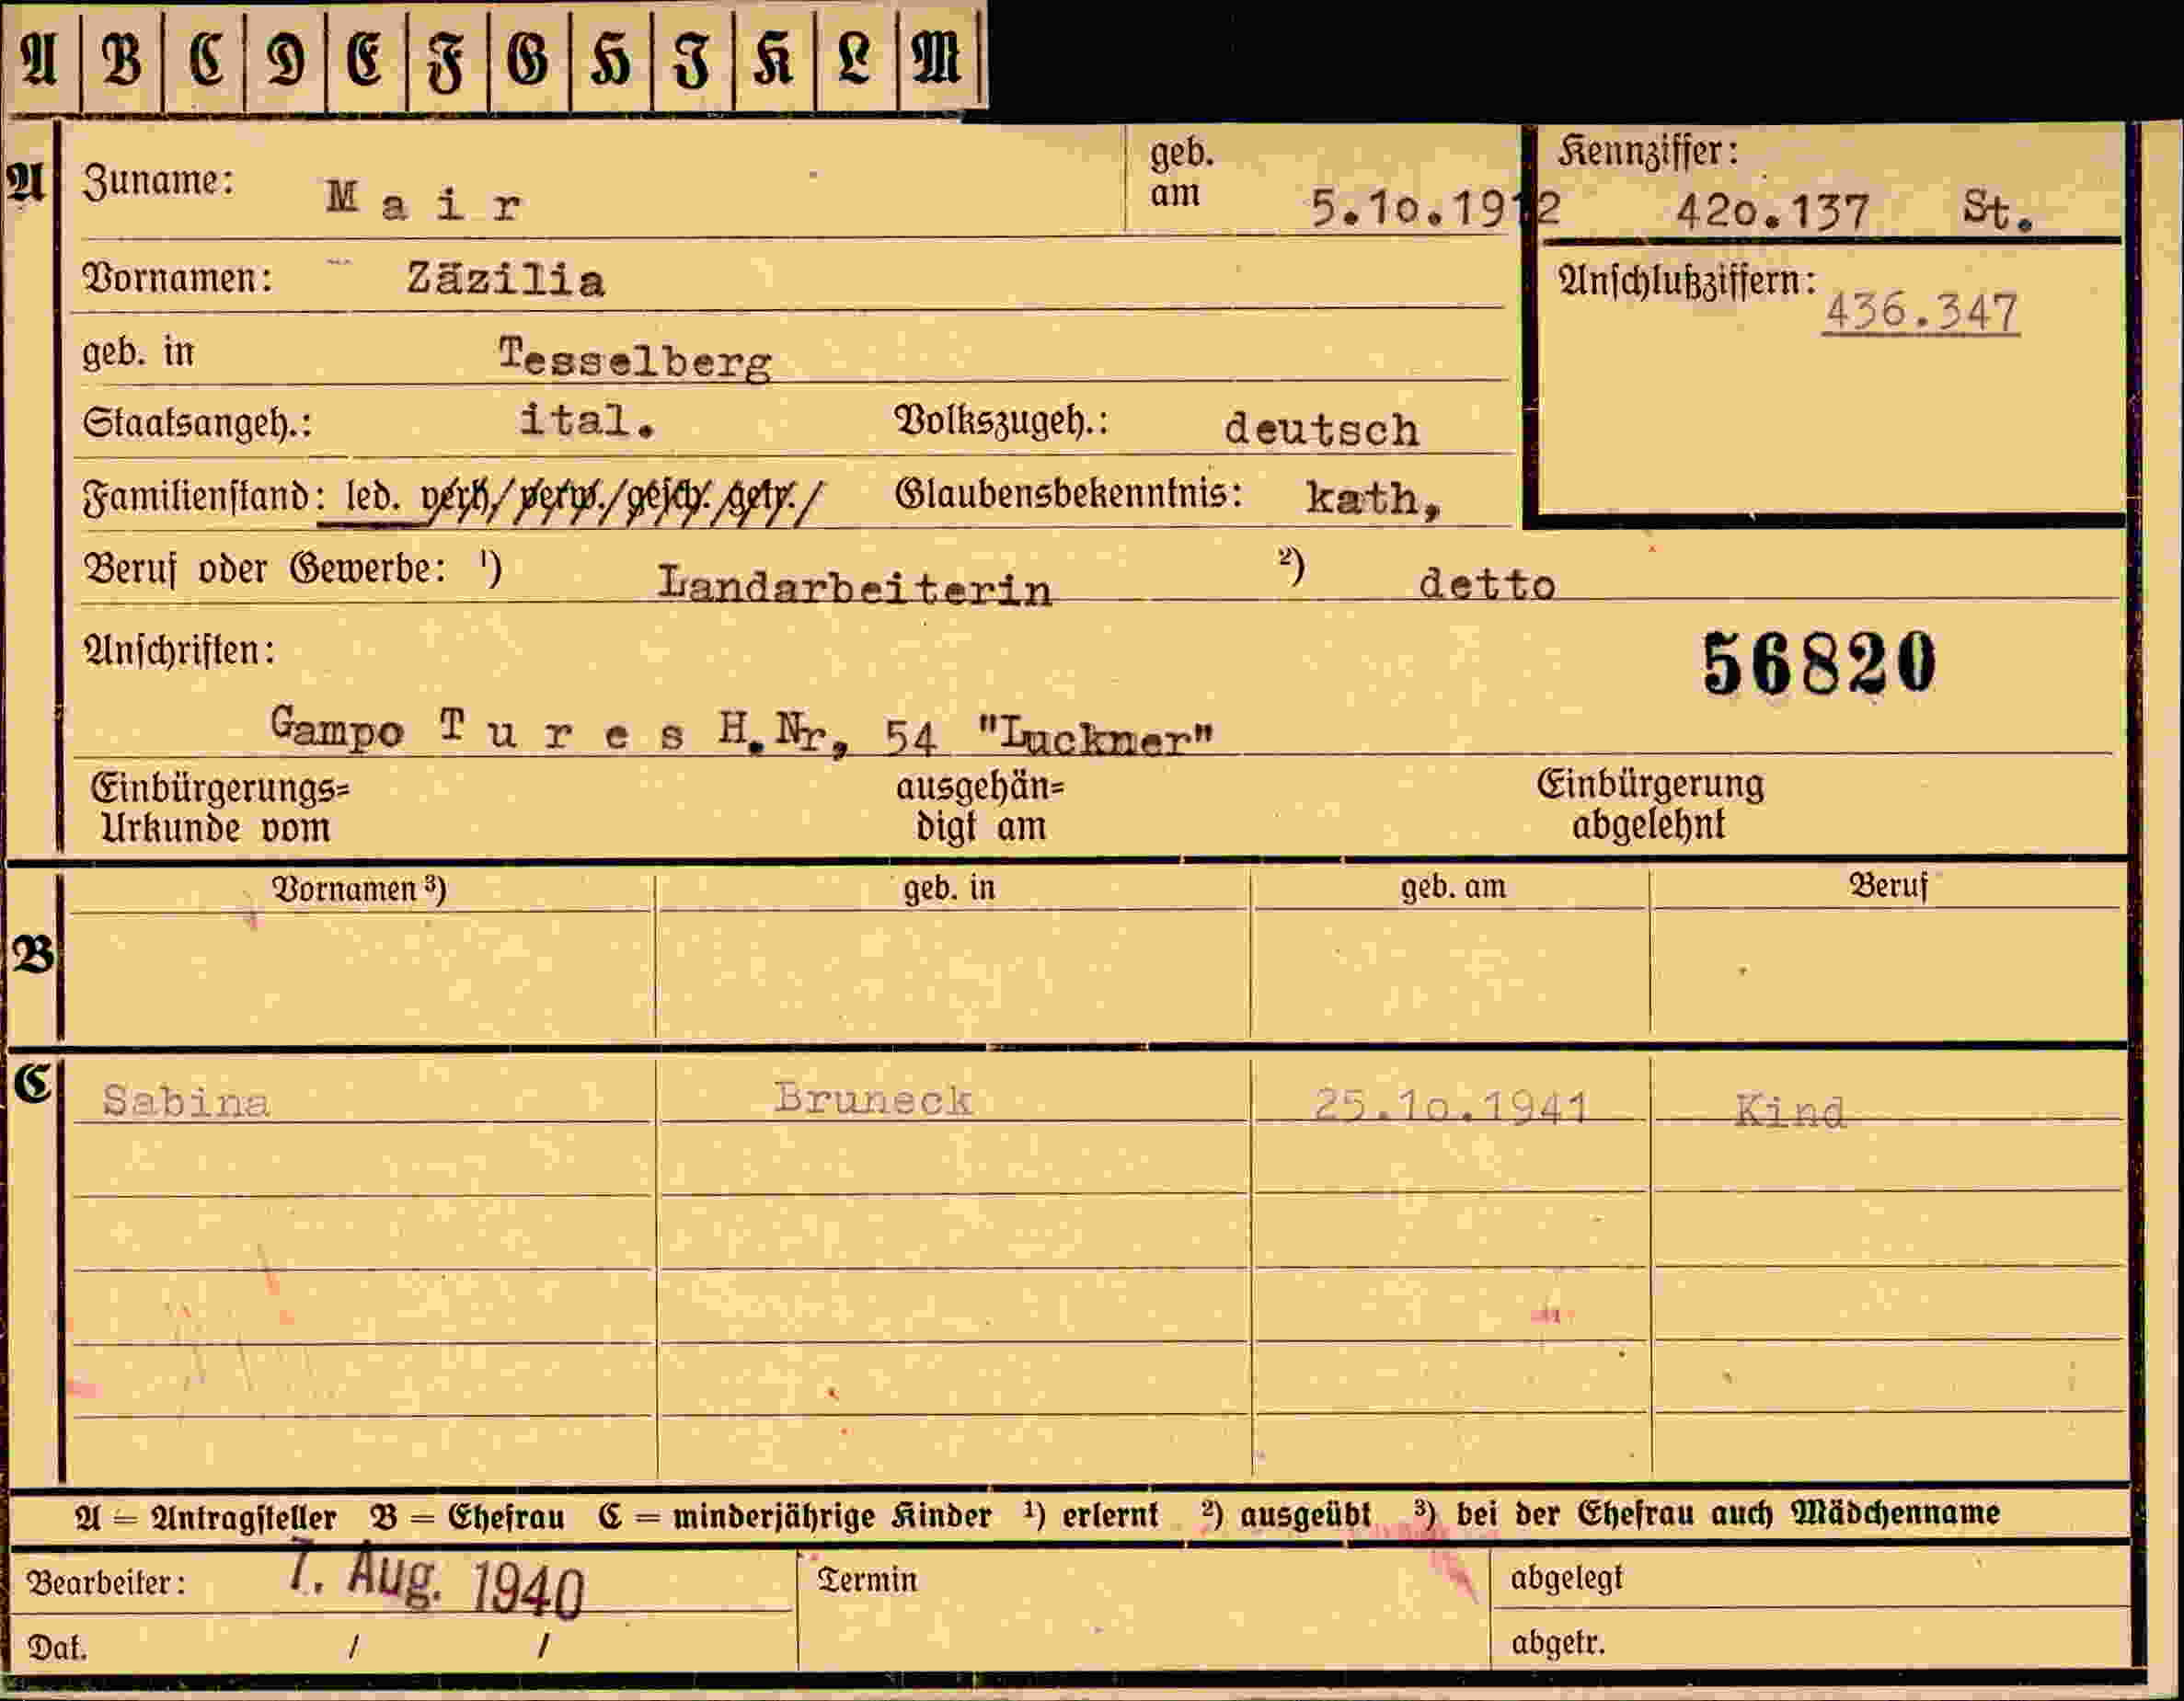 A B C D E F G H I K L M
A Zuname: Mair geb. am 5.10.1912 Kennziffer: 420.137 St.
Vornamen: Zäzilia Anschlußziffern: 436.347
geb. in Tesselberg
Staatsangeh.: ital. Volkszugeh.: deutsch
Familienstand: led. verh/verw./gesch./getr./ Glaubensbekenntnis: kath,
Beruf oder Gewerbe: ¹) Landarbeiterin ²) detto
Anschriften: 56820
Gampo Tures H.Nr, 54 "Luckner"
Einbürgerungs= ausgehän= Einbürgerung
Urkunde vom digt am abgelehnt
B Vornamen ³) geb. in geb. am Beruf
C Sabina Bruneck 25.10.1941 Kind
A = Antragsteller B = Ehefrau C = minderjährige Kinder ¹) erlernt ²) ausgeübt ³) bei der Ehefrau auch Mädchenname
Bearbeiter: 7. Aug. 1940 Termin abgelegt
Dat. / / abgetr.